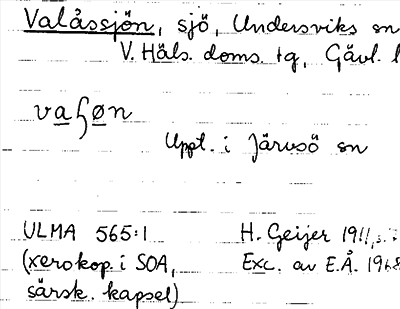 Valåssjön, sjö, Undersviks sn
V. Häls. doms. tg, Gävl. l
Uppt. i Järvsö sn
ULMA 565:1 H. Geijer 1911, s.
(xerokop. i SOA, Exc. av E.Å. 1968
särsk. kapsel)